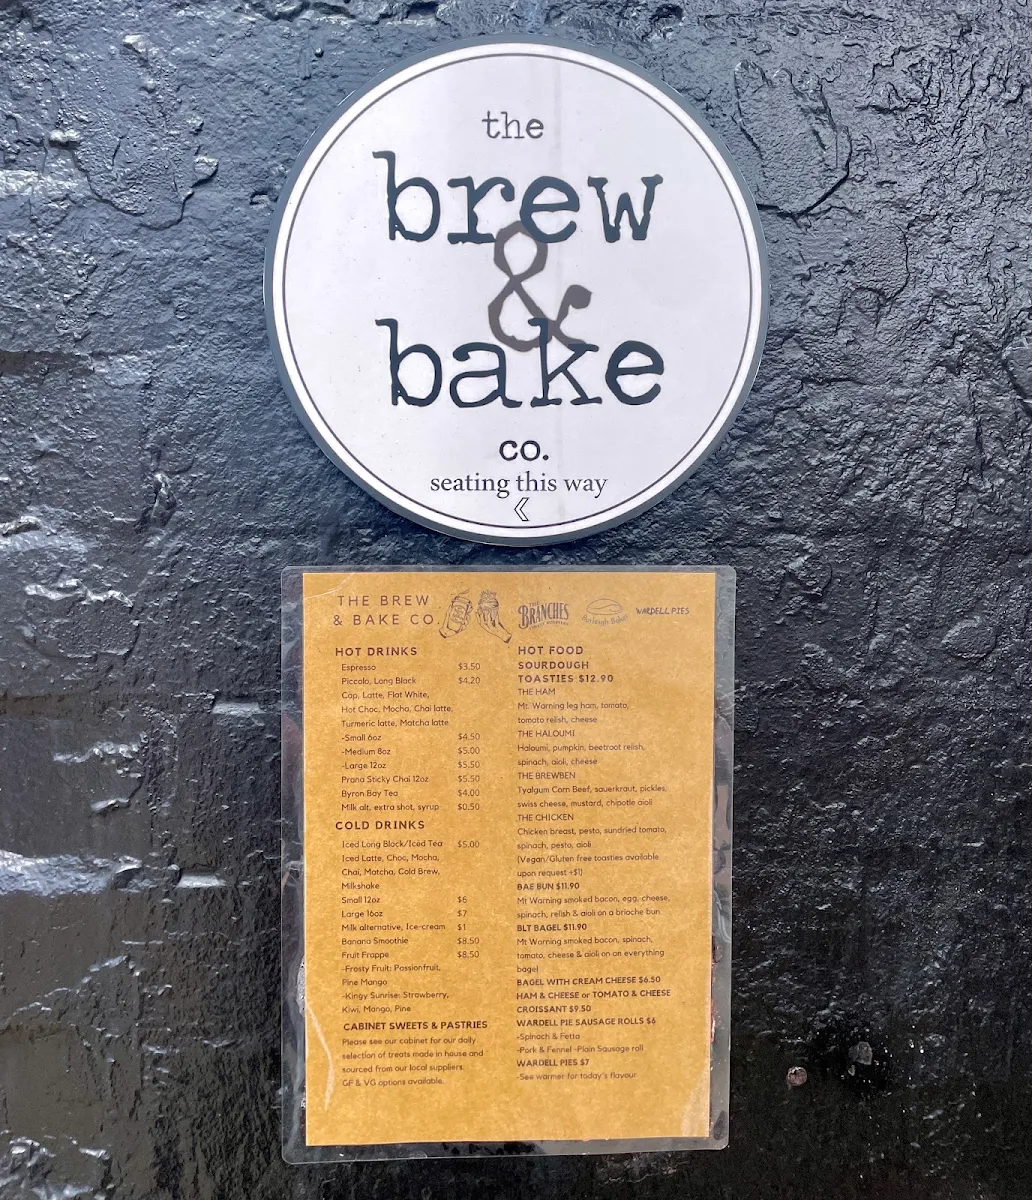 the
brew
&
bake
co.
seating this way
THE BREW
& BAKE CO.
THE
BRANCHES
Burleigh Baker
WARDELL PIES
HOT DRINKS
Espresso $3.50
Piccolo, Long Black $4.20
Cap, Latte, Flat White,
Hot Choc, Mocha, Chai latte,
Turmeric latte, Matcha latte
-Small 6oz $4.50
-Medium 8oz $5.00
-Large 12oz $5.50
Prana Sticky Chai 12oz $5.50
Byron Bay Tea $4.00
Milk alt, extra shot, syrup $0.50
COLD DRINKS
Iced Long Black/Iced Tea $5.00
Iced Latte, Choc, Mocha,
Chai, Matcha, Cold Brew,
Milkshake
Small 12oz $6
Large 16oz $7
Milk alternative, Ice-cream $1
Banana Smoothie $8.50
Fruit Frappe $8.50
-Frosty Fruit: Passionfruit,
Pine Mango
-Kingy Sunrise: Strawberry,
Kiwi, Mango, Pine
CABINET SWEETS & PASTRIES
Please see our cabinet for our daily
selection of treats made in house and
sourced from our local suppliers.
GF & VG options available.
HOT FOOD
SOURDOUGH
TOASTIES $12.90
THE HAM
Mt. Warning leg ham, tomato,
tomato relish, cheese
THE HALOUMI
Haloumi, pumpkin, beetroot relish,
spinach, aioli, cheese
THE BREWBEN
Tyalgum Corn Beef, sauerkraut, pickles,
swiss cheese, mustard, chipotle aioli
THE CHICKEN
Chicken breast, pesto, sundried tomato,
spinach, pesto, aioli
(Vegan/Gluten free toasties available
upon request +$1)
BAE BUN $11.90
Mt Warning smoked bacon, egg, cheese,
spinach, relish & aioli on a brioche bun
BLT BAGEL $11.90
Mt Warning smoked bacon, spinach,
tomato, cheese & aioli on an everything
bagel
BAGEL WITH CREAM CHEESE $6.50
HAM & CHEESE or TOMATO & CHEESE
CROISSANT $9.50
WARDELL PIE SAUSAGE ROLLS $6
-Spinach & Fetta
-Pork & Fennel -Plain Sausage roll
WARDELL PIES $7
-See warmer for today's flavour